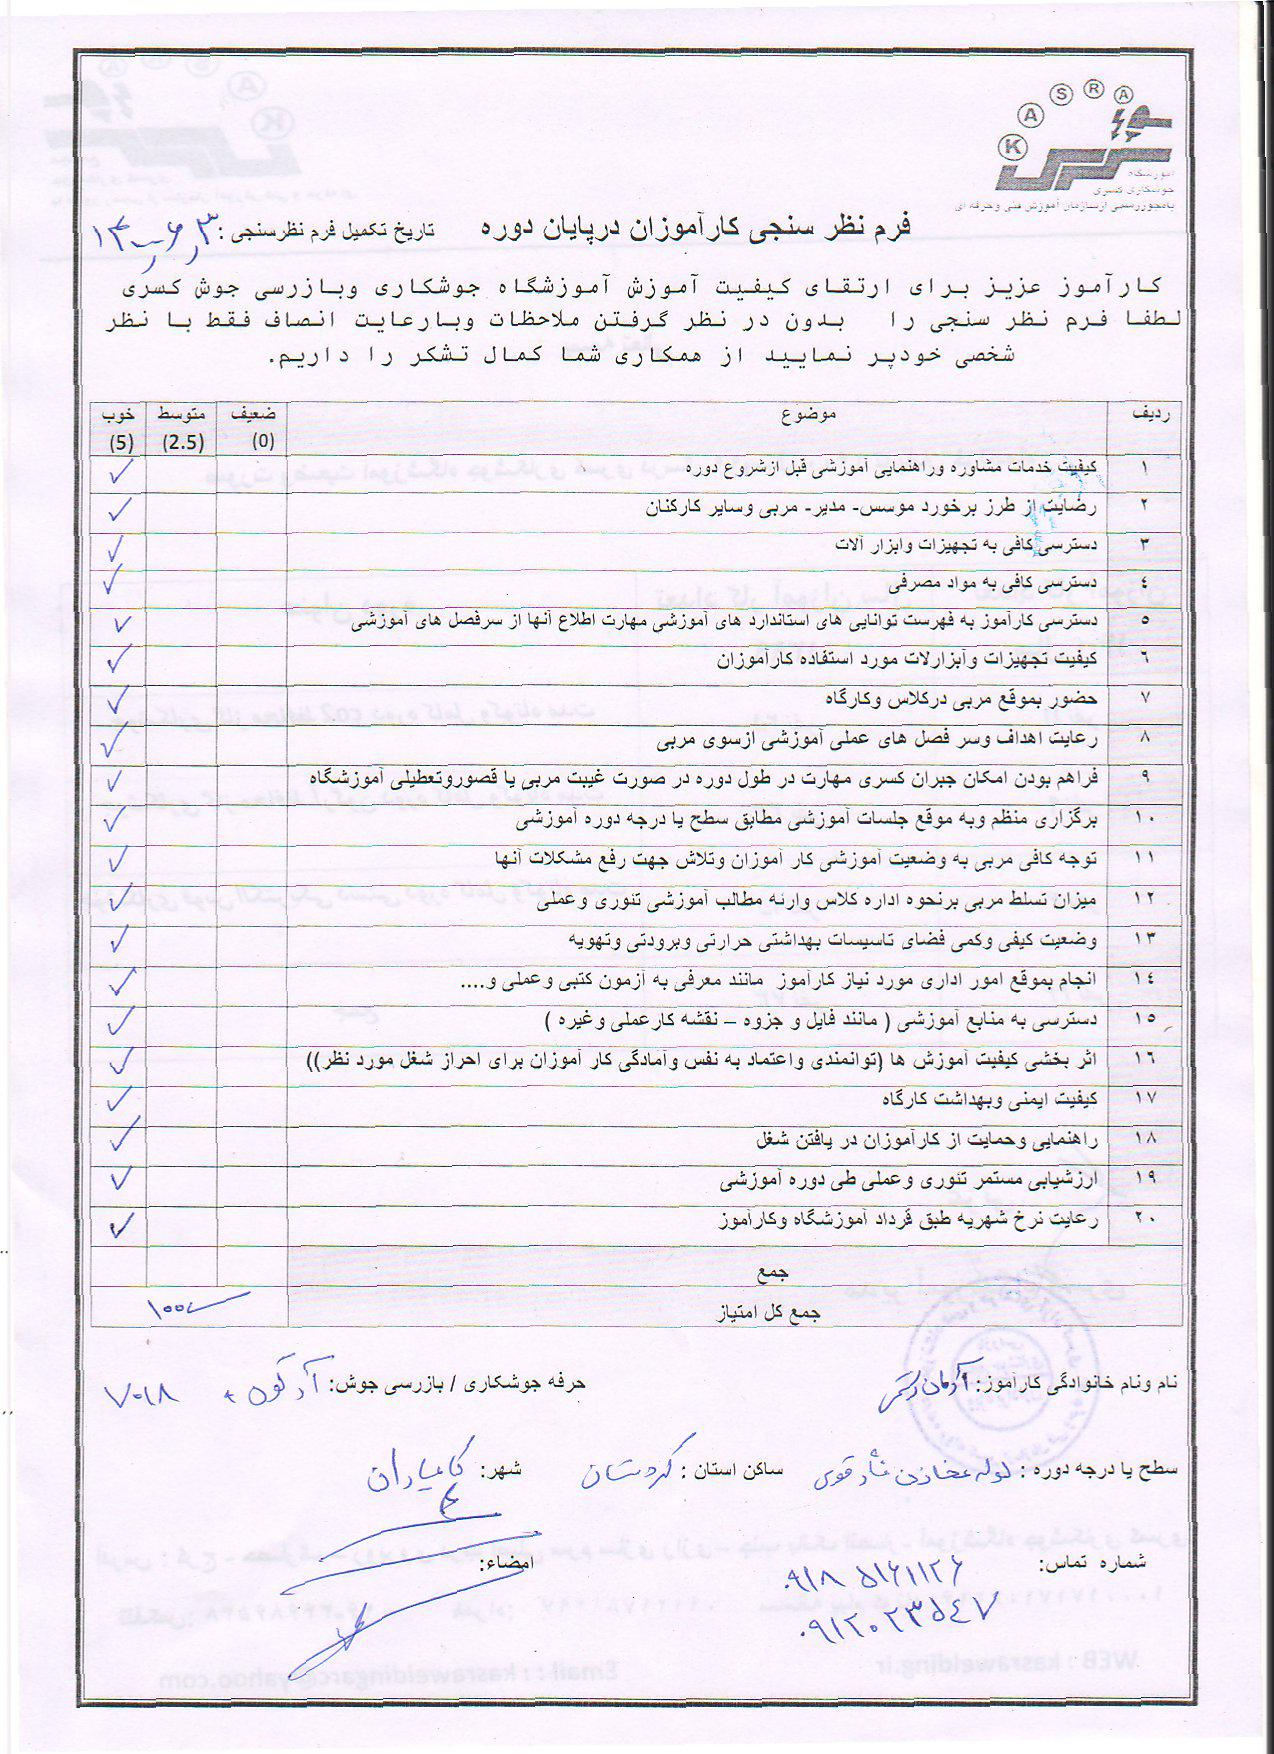 K A S R A
آموزشگاه
جوشکاری کسری
بامجوزرسمی ازسازمان آموزش فنی وحرفه ای
فرم نظر سنجی کارآموزان درپایان دوره تاریخ تکمیل فرم نظرسنجی :
کارآموز عزیز برای ارتقای کیفیت آموزش آموزشگاه جوشکاری وبازرسی جوش کسری
لطفا فرم نظر سنجی را بدون در نظر گرفتن ملاحظات وبارعایت انصاف فقط با نظر
شخصی خودپر نمایید از همکاری شما کمال تشکر را داریم.
ردیف موضوع ضعیف (0) متوسط (2.5) خوب (5)
۱ کیفیت خدمات مشاوره وراهنمایی آموزشی قبل ازشروع دوره ✓
۲ رضایت از طرز برخورد موسس- مدیر- مربی وسایر کارکنان ✓
۳ دسترسی کافی به تجهیزات وابزار آلات ✓
٤ دسترسی کافی به مواد مصرفی ✓
٥ دسترسی کارآموز به فهرست توانایی های استاندارد های آموزشی مهارت اطلاع آنها از سرفصل های آموزشی ✓
٦ کیفیت تجهیزات وآبزارلات مورد استفاده کارآموزان ✓
۷ حضور بموقع مربی درکلاس وکارگاه ✓
۸ رعایت اهداف وسر فصل های عملی آموزشی ازسوی مربی ✓
۹ فراهم بودن امکان جبران کسری مهارت در طول دوره در صورت غیبت مربی یا قصوروتعطیلی آموزشگاه ✓
۱۰ برگزاری منظم وبه موقع جلسات آموزشی مطابق سطح یا درجه دوره آموزشی ✓
۱۱ توجه کافی مربی به وضعیت آموزشی کار آموزان وتلاش جهت رفع مشکلات آنها ✓
۱۲ میزان تسلط مربی برنحوه اداره کلاس وارئه مطالب آموزشی تئوری وعملی ✓
۱۳ وضعیت کیفی وکمی فضای تاسیسات بهداشتی حرارتی وبرودتی وتهویه ✓
۱٤ انجام بموقع امور اداری مورد نیاز کارآموز مانند معرفی به آزمون کتبی وعملی و.... ✓
۱٥ دسترسی به منابع آموزشی ( مانند فایل و جزوه – نقشه کارعملی وغیره ) ✓
۱٦ اثر بخشی کیفیت آموزش ها (توانمندی واعتماد به نفس وآمادگی کار آموزان برای احراز شغل مورد نظر)) ✓
۱۷ کیفیت ایمنی وبهداشت کارگاه ✓
۱۸ راهنمایی وحمایت از کارآموزان در یافتن شغل ✓
۱۹ ارزشیابی مستمر تئوری وعملی طی دوره آموزشی ✓
۲۰ رعایت نرخ شهریه طبق قرداد آموزشگاه وکارآموز ✓
جمع
جمع کل امتیاز ۱۰۰
نام ونام خانوادگی کارآموز: آرمان حرفه جوشکاری / بازرسی جوش: آرگون + ۷۰۱۸
سطح یا درجه دوره : لوله مخازن فشار قوی ساکن استان : کردستان شهر: کامیاران
شماره تماس: ۰۹۱۸ ۵۱۶۱۱۲۶ امضاء:
۰۹۱۲۰۲۳۵۴۷